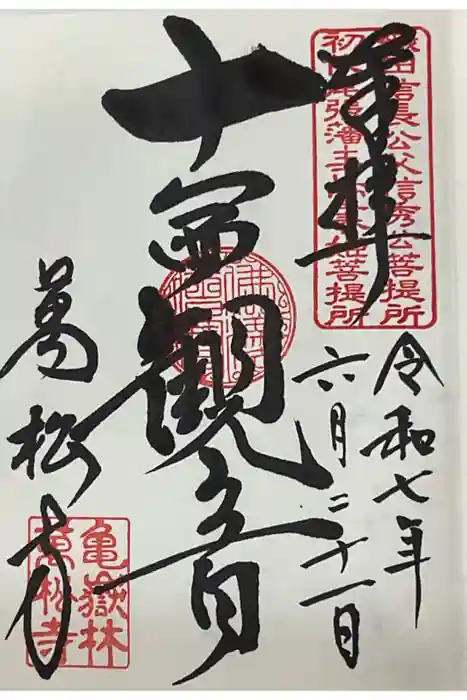 奉拝
織田信長公父信秀公菩提所
初代尾張藩主 春姫菩提所
令和七年
六月二十一日
十一面観音
萬松寺
亀嶽林
萬松寺